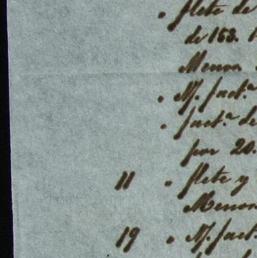 " flete de
de 153.
Menon
" M. fact.ª
" fact.ª de
por 20.
11 " flete y
Menon
19 " M. fact.